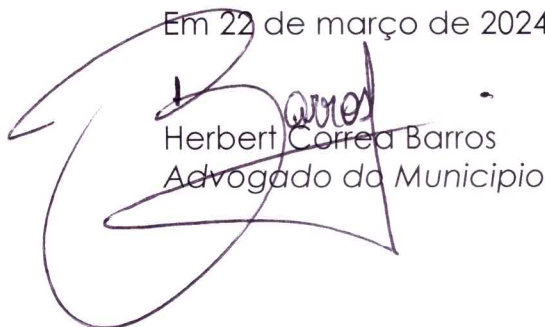 Em 22 de março de 2024
Barros
Herbert Correa Barros
Advogado do Municipio